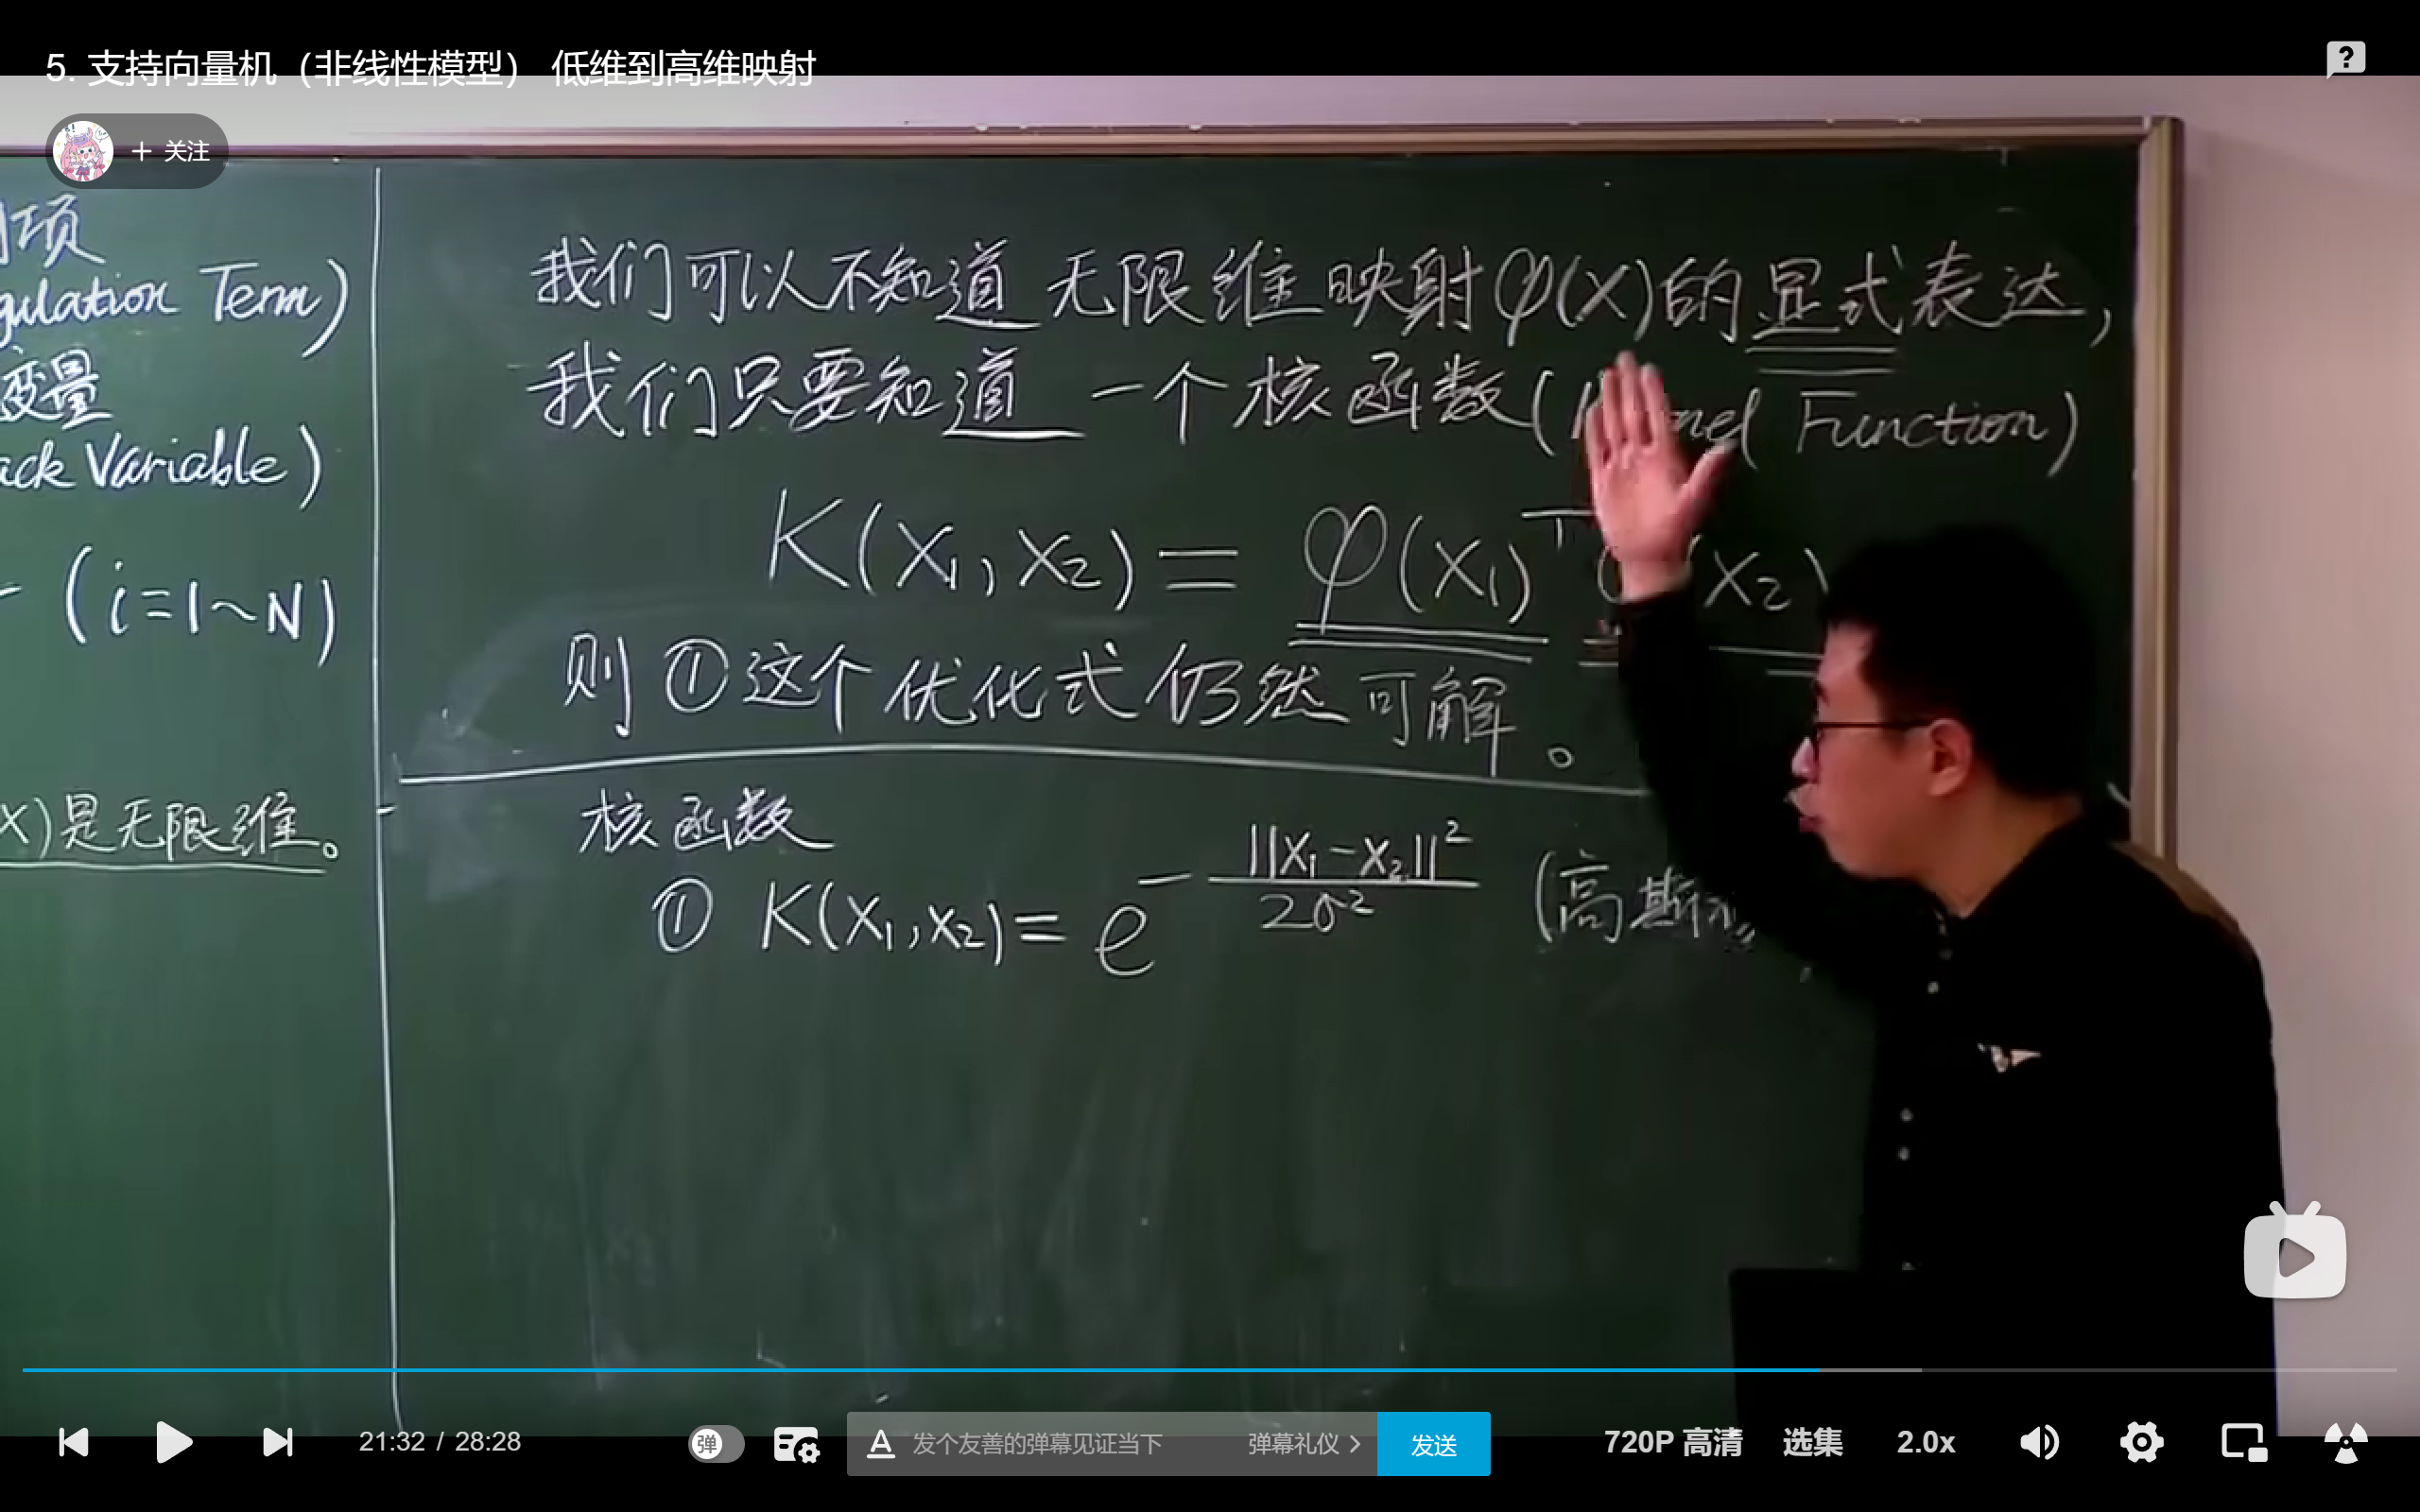 5. 支持向量机（非线性模型） 低维到高维映射
+ 关注
项
gulation Term)
变量
ack Variable)
(i=1~N)
X)是无限维。
我们可以不知道无限维映射φ(X)的显式表达，
我们只要知道一个核函数( nel Function)
K(X₁,X₂)= φ(X₁)ᵀ (X₂)
则 ①这个优化式仍然可解。
核函数
① K(X₁,X₂)= e^(-||X₁-X₂||²/2σ²) (高斯
21:32 / 28:28
弹
发个友善的弹幕见证当下
弹幕礼仪 >
发送
720P 高清
选集
2.0x